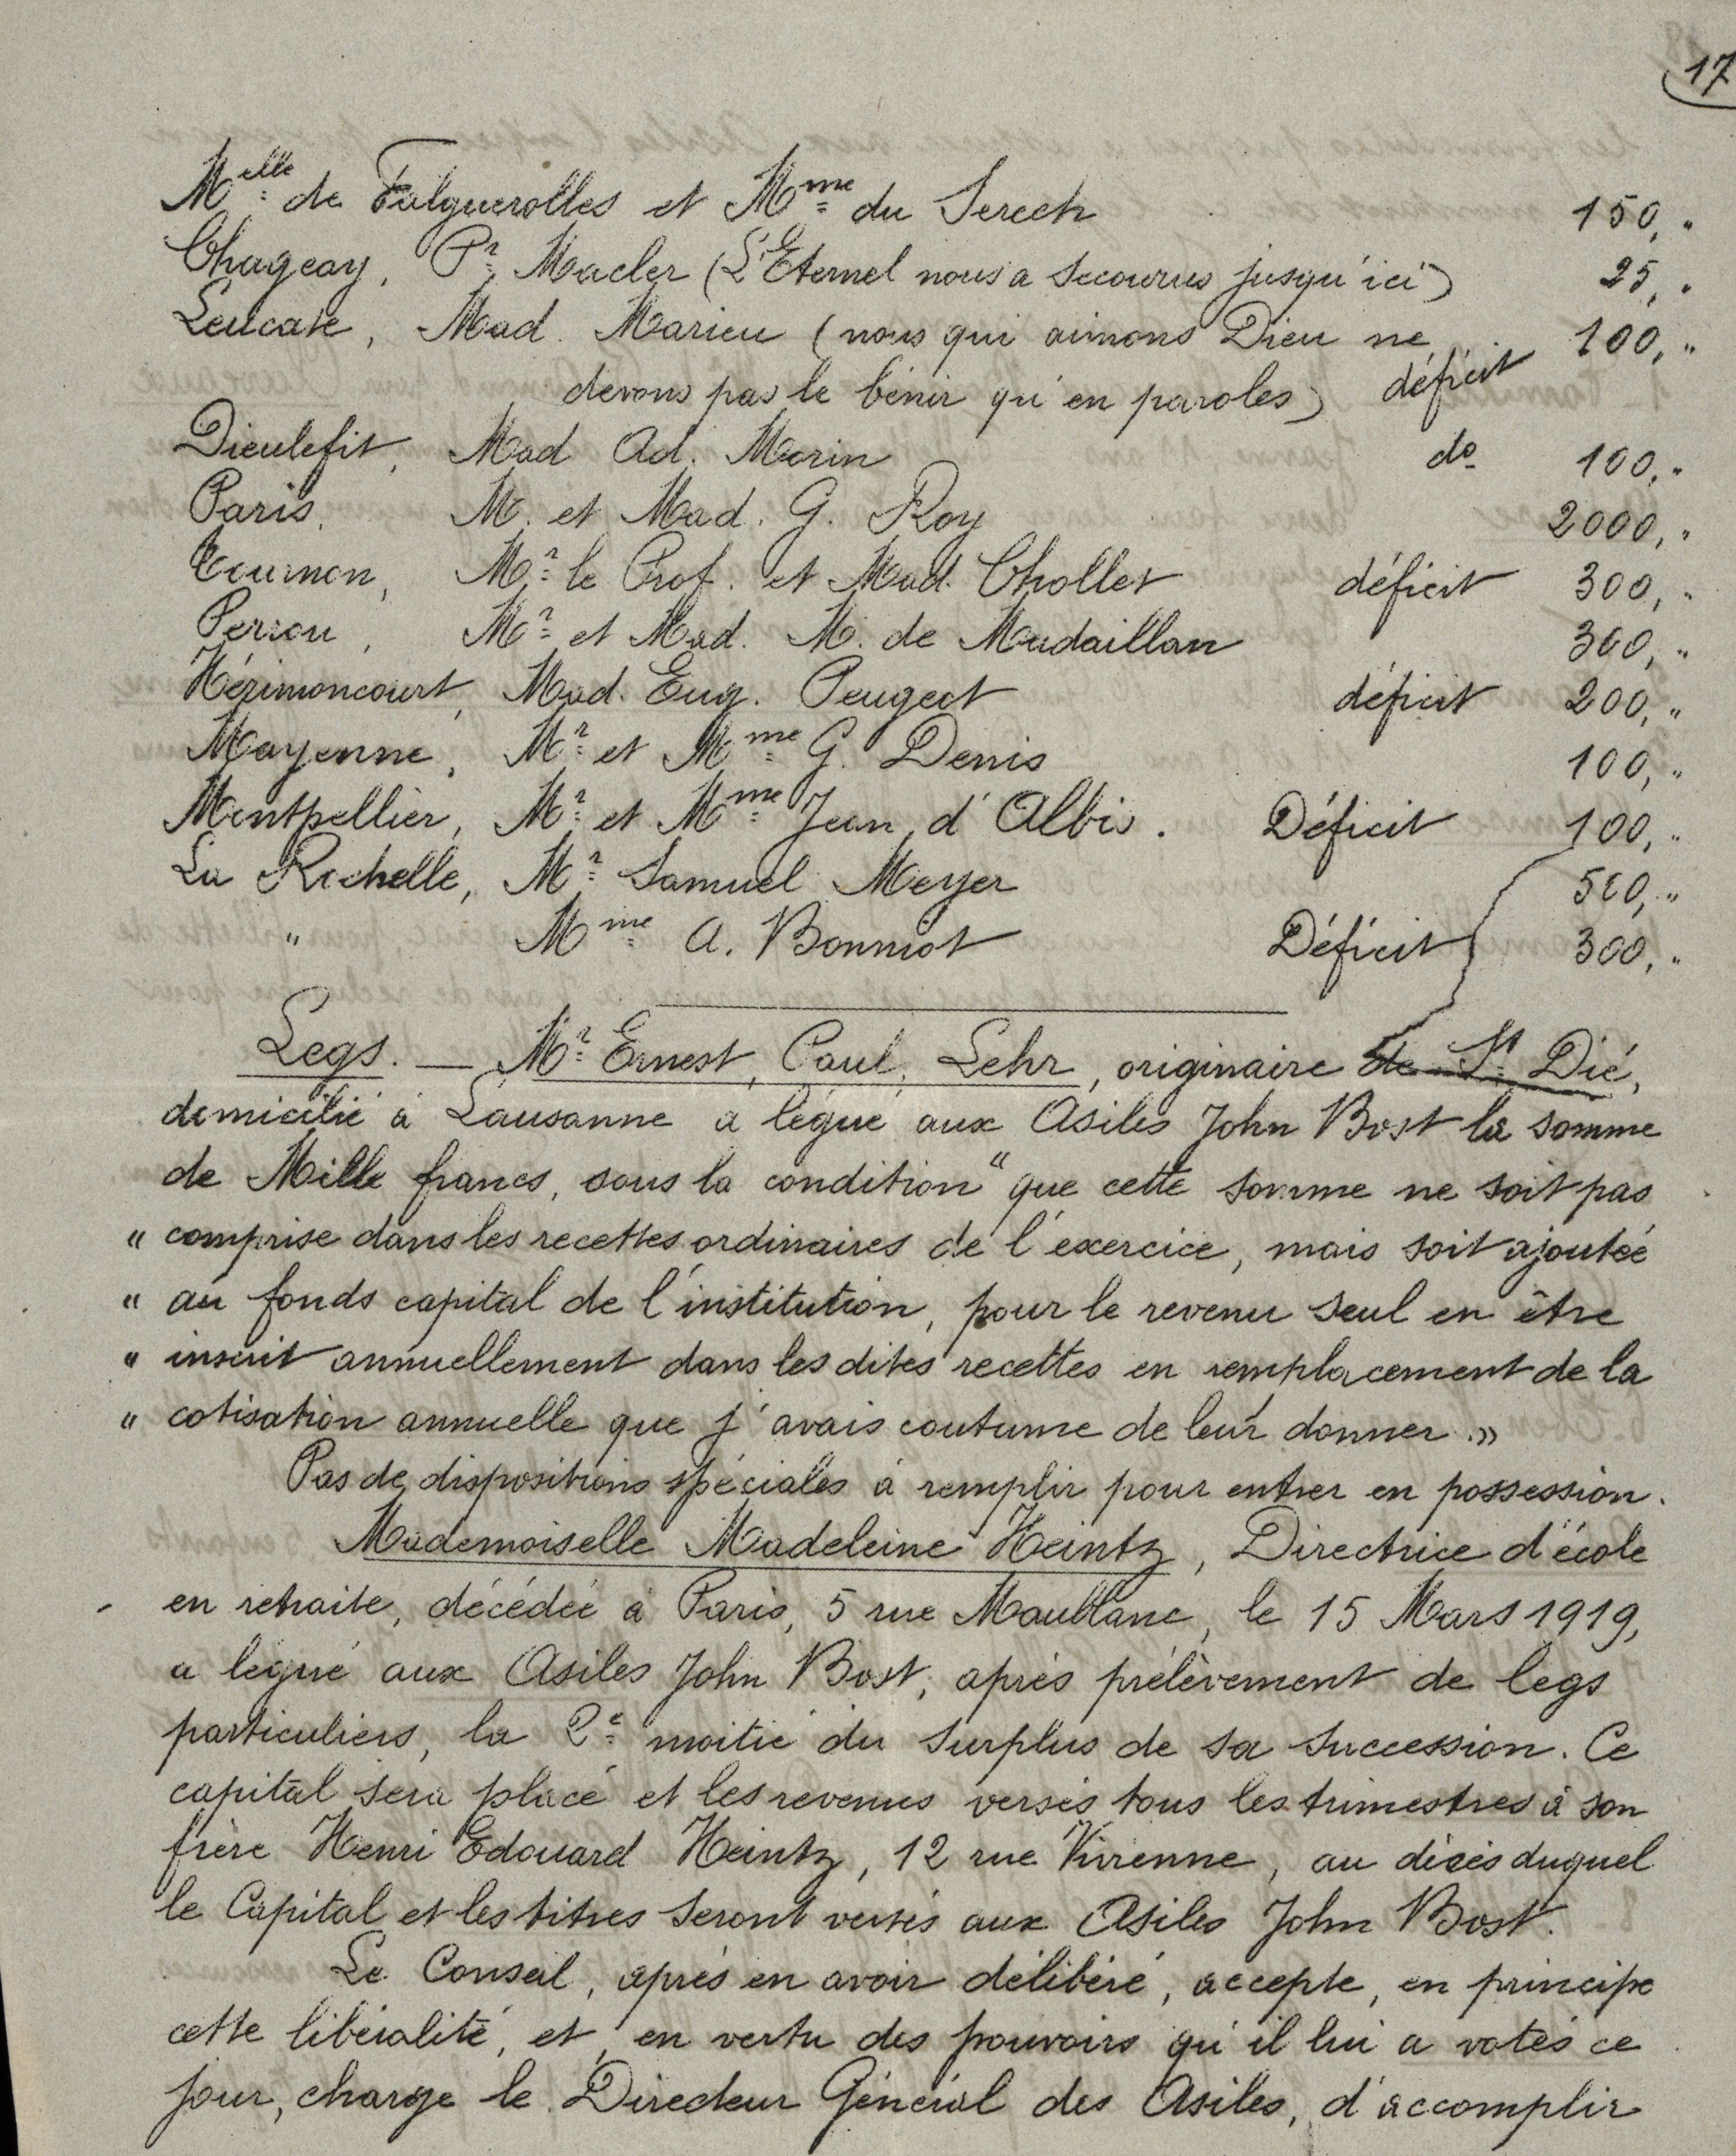 17
Melle de Falguerolles et Mme du Serech 150, "
Chagey, Pr Macler (L'Eternel nous a secourus jusqu'ici) 25, "
Leucate, Mad. Marieu (nous qui aimons Dieu ne 100, "
devons pas le bénir qu'en paroles) déficit
Dieulefit, Mad Ad. Morin do 100, "
Paris, M. et Mad. G. Roy 2000, "
Tournon, Mr le Prof. et Mad. Chollet déficit 300, "
Perrou, Mr et Mad. M. de Madaillan 300, "
Hérimoncourt, Mad. Eug. Peugeot déficit 200, "
Mayenne, Mr et Mme G. Denis 100, "
Montpellier, Mr et Mme Jean d'Albis. Déficit 100, "
La Rochelle, Mr Samuel Meyer 500, "
" Mme A. Bonniot Déficit 300, "
Legs. — Mr Ernest, Paul, Lehr, originaire de St Dié,
domicilié à Lausanne a légué aux Asiles John Bost la somme
de Mille francs, sous la condition " que cette somme ne soit pas
" comprise dans les recettes ordinaires de l'exercice, mais soit ajoutée
" au fonds capital de l'institution, pour le revenu seul en être
" inscrit annuellement dans les dites recettes en remplacement de la
" cotisation annuelle que j'avais coutume de leur donner. »
Pas de dispositions spéciales à remplir pour entrer en possession.
Mademoiselle Madeleine Heintz, Directrice d'école
en retraite, décédée à Paris, 5 rue Maublanc, le 15 Mars 1919,
a légué aux Asiles John Bost, après prélèvement de legs
particuliers, la 2e moitié du surplus de sa succession. Ce
capital sera placé et les revenus versés tous les trimestres à son
frère Henri Edouard Heintz, 12 rue Vivienne, au décès duquel
le Capital et les titres seront versés aux Asiles John Bost.
Le Conseil, après en avoir délibéré, accepte, en principe
cette libéralité, et, en vertu des pouvoirs qu'il lui a votés ce
jour, charge le Directeur Général des Asiles, d'accomplir